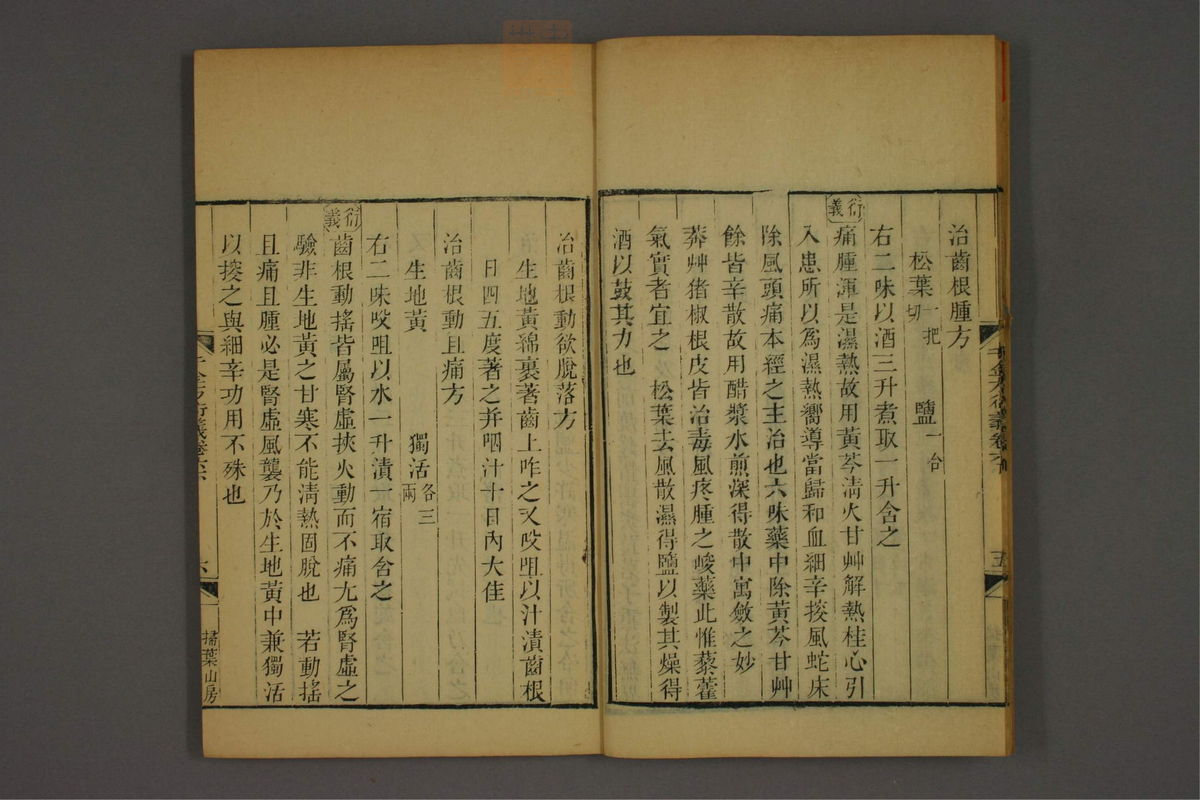 治齒根腫方
松葉一把切 鹽一合
右二味以酒三升煮取一升含之
衍義
痛腫渾是濕熱故用黃芩淸火甘艸解熱桂心引
入患所以爲濕熱嚮導當歸和血細辛㧞風蛇床
除風頭痛本經之主治也六味藥中除黃芩甘艸
餘皆辛散故用醋漿水煎深得散中寓斂之妙
莽艸猪椒根皮皆治毒風疼腫之峻藥此惟藜藿
氣實者宜之 松葉去風散濕得鹽以製其燥得
酒以鼓其力也
千金方衍義卷六
五
治齒根動欲脫落方
生地黃綿裹著齒上咋之又㕮咀以汁漬齒根
日四五度著之并咽汁十日內大佳
治齒根動且痛方
生地黃 獨活各三兩
右二味㕮咀以水一升漬一宿取含之
衍義
齒根動搖皆屬腎虛挾火動而不痛尢爲腎虛之
驗非生地黃之甘寒不能淸熱固脫也 若動搖
且痛且腫必是腎虛風襲乃於生地黃中兼獨活
以㧞之與細辛功用不殊也
千金方衍義卷六
六
掃葉山房